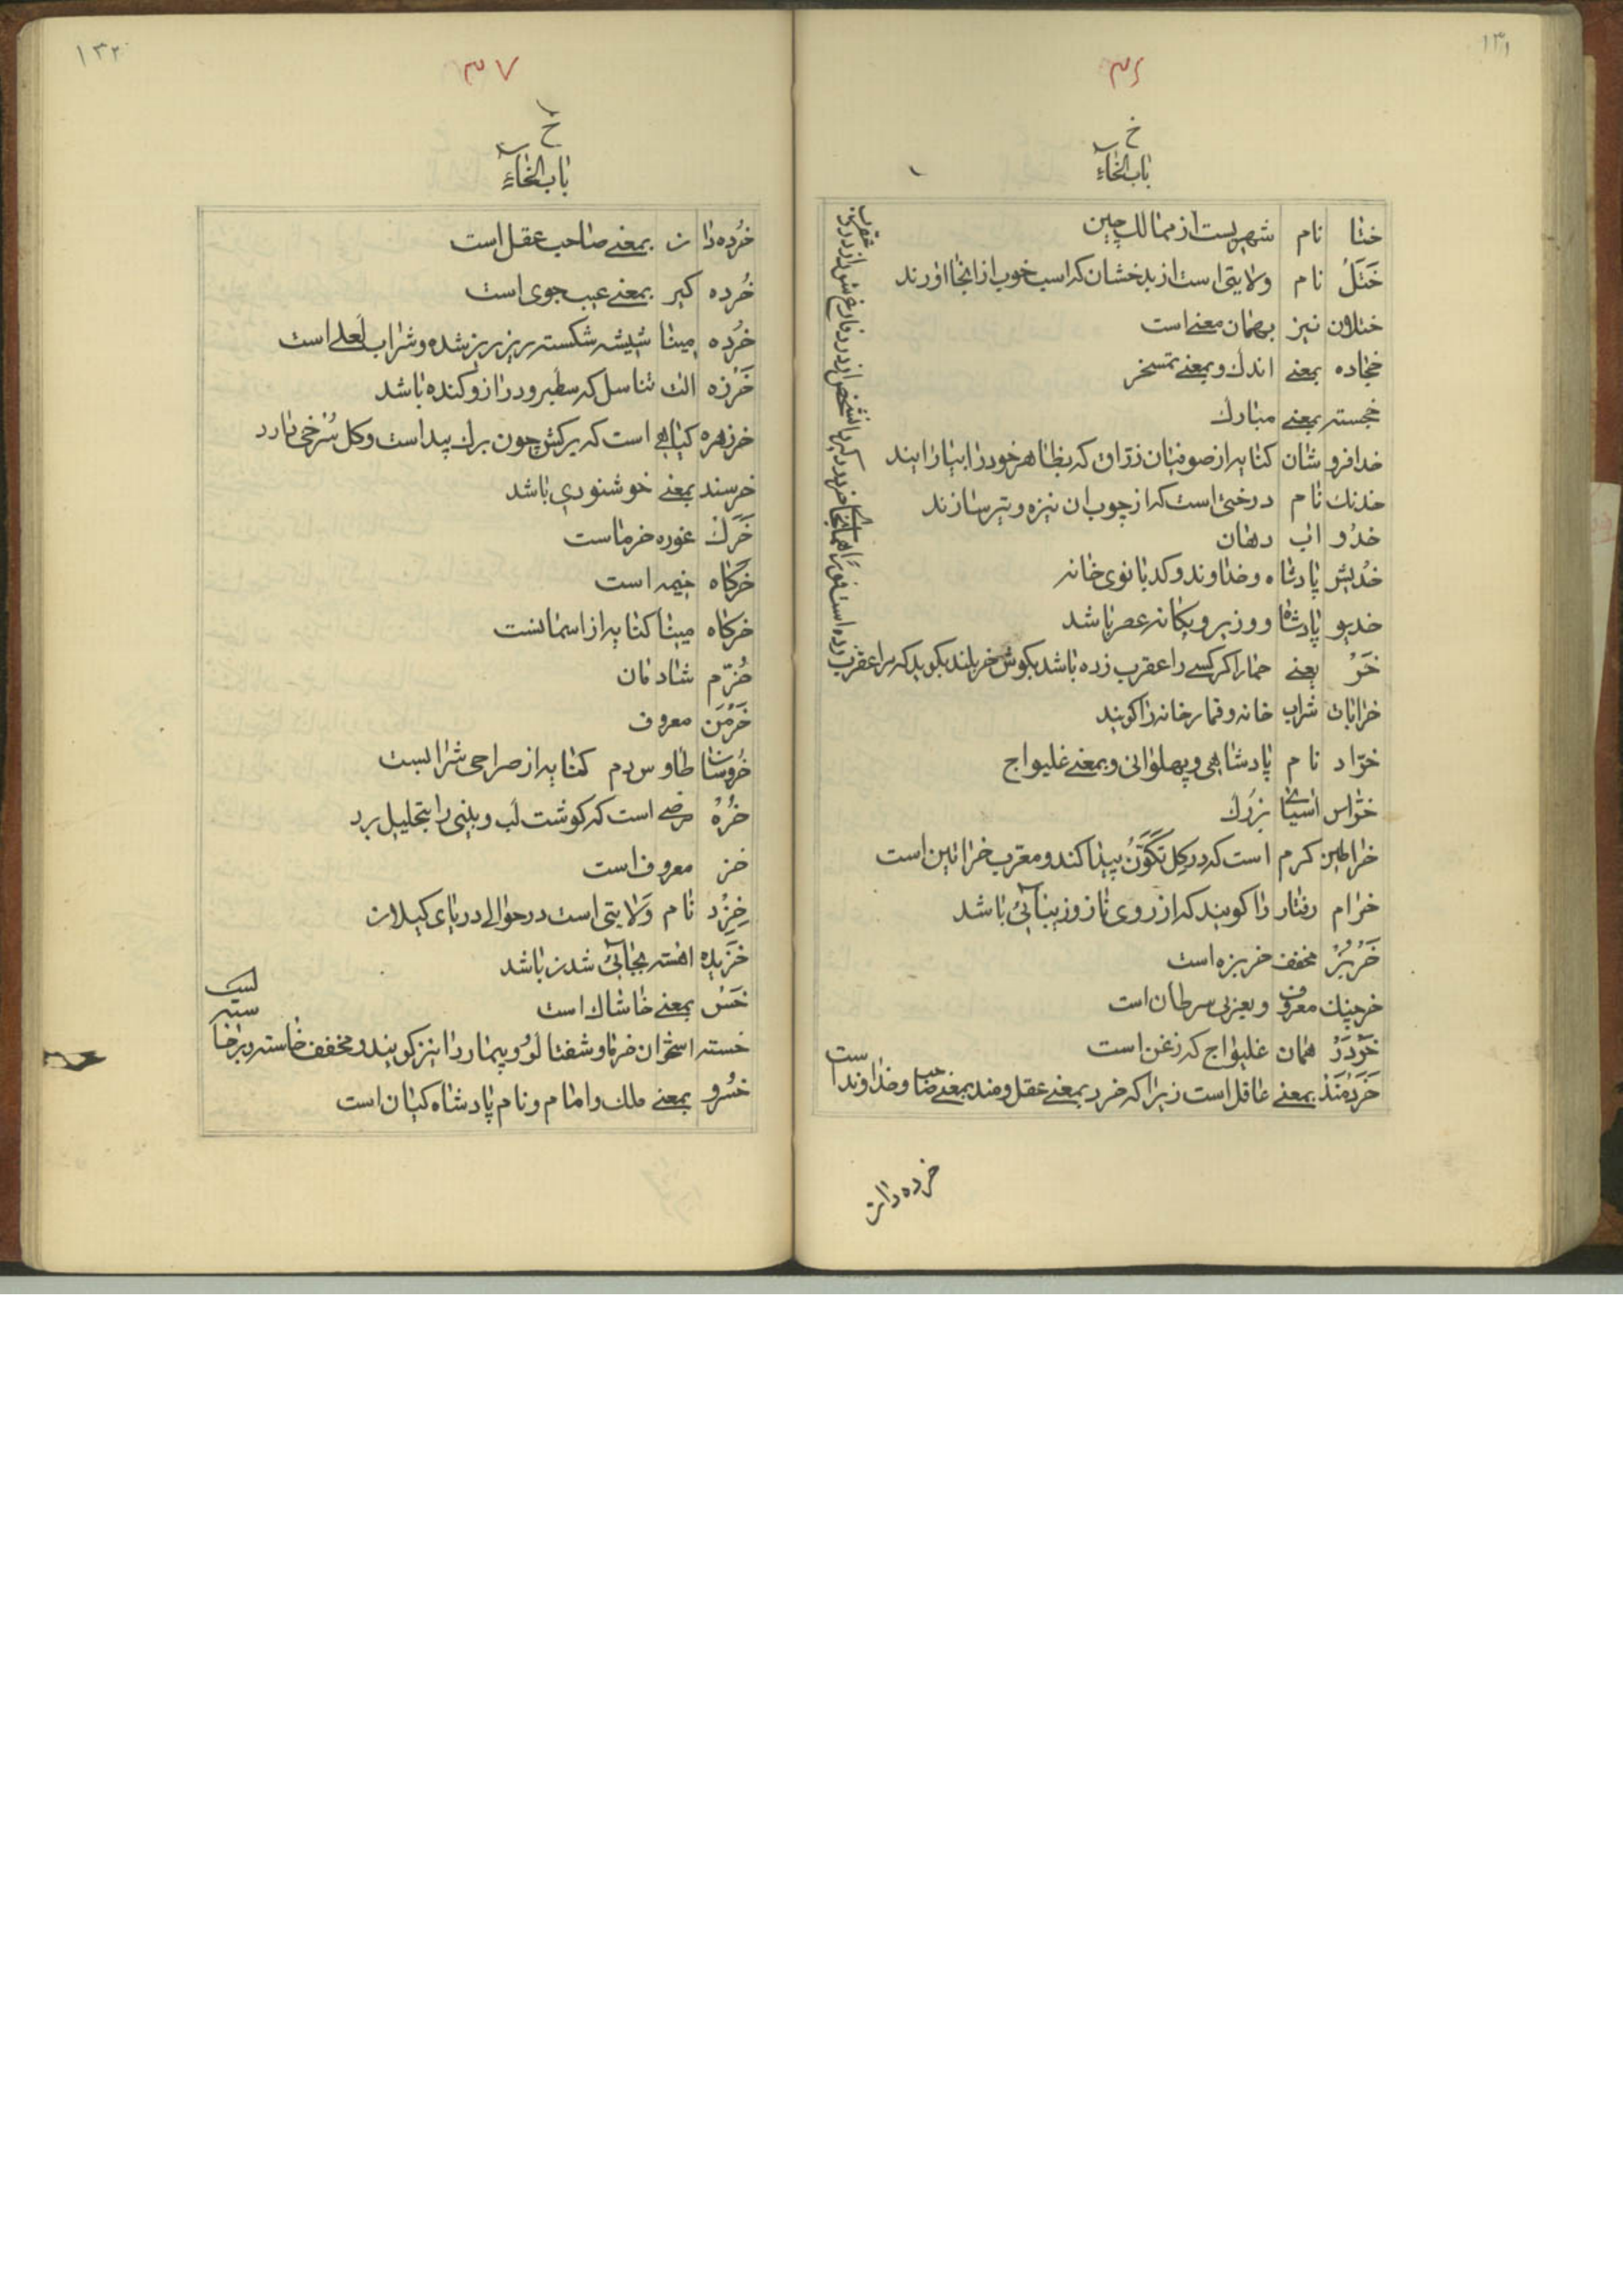 ۱۳۱
۳۶
خ
باب الخاء
ختا نام شهریست از ممالک چین
خَتَلُ نام ولایتی است از بدخشان که اسب خوب از انجا اورند
ختلان نیز بهمان معنی است
خجاده بمعنی اندك و بمعنی تمسخر
خجسته بمعنی مبارك
خدافروشان کنایه از صوفیان زراق که بظاهر خود را بیارایند
خدنك نام درختی است که از چوب ان نیزه و تیر سازند
خدُو اب دهان
خُدیش پادشاه و خداوند و کدبانوی خانه
خدیو پادشاه و وزیر و یکانه عصر باشد
خَرْ یعنی حمار اکر کسی را عقرب زده باشد بکوش خر بلند بکوید که مرا عقرب
زده است فورا همانجا خر درد کیرد انشخص از درد فارغ شود از درد عقرب
خرابات شراب خانه و قمارخانه را کویند
خرّاد نام پادشاهی و پهلوانی و بمعنی غلیواج
خراس اسیای بزرك
خراطین کرم است که در کل تکَوَّنُ پیدا کند و معرب خراتین است
خرام رفتار را کویند که از روی ناز و زیبائی باشد
خَرْبُزْ مخفف خربزه است
خرچنك معروف و بعربی سرطان است
خَرْدَرْ همان غلیواج که زغن است
خَرَدْمَنْدْ بمعنی عاقل است زیرا که خرد بمعنی عقل و مند بمعنی صاحب و خداوند است
خرده دان
۱۳۲
۳۷
خ
باب الخاء
خرُده دان بمعنی صاحب عقل است
خُرده کیر بمعنی عیب جوی است
خرُده مینا شیشه شکسته ریز ریز شده و شراب لعلی است
خَرْزه الت تناسل که سطبر و دراز و کنده باشد
خرزهره کیاهی است که برکش چون برك بید است و کل سُرخی دارد
خرسند بمعنی خوشنودی باشد
خَرَكْ غوره خرماست
خَرکاه خیمه است
خرکاه مینا کنایه از اسمانست
خُرّم شادمان
خَرْمَن معروف
خُروسان طاوس دم کنایه از صراحی شرابست
خُرُهْ مرضی است که کوشت لب و بینی را بتحلیل برد
خز معروف است
خِزِرْد نام ولایتی است در حوالی دریای کیلان
خَزیده اهسته بجائی شدن باشد
خَسْ بمعنی خاشاك است
خسته استخوان خرما و شفتالو و بیمار را نیز کویند و مخفف خاسته و برخا
ستہ
خسُرو بمعنی ملك و امام و نام پادشاه کیان است